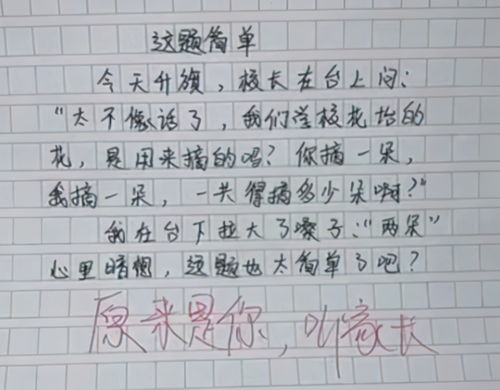 这题简单
今天升旗，校长在台上问：
“太不像话了，我们学校花抬的
花，是用来摘的吗？你摘一朵，
我摘一朵，一共得摘多少朵啊？”
我在台下拉大了嗓子：“两朵”
心里暗想，这题也太简单了吧？
原来是你，叫家长